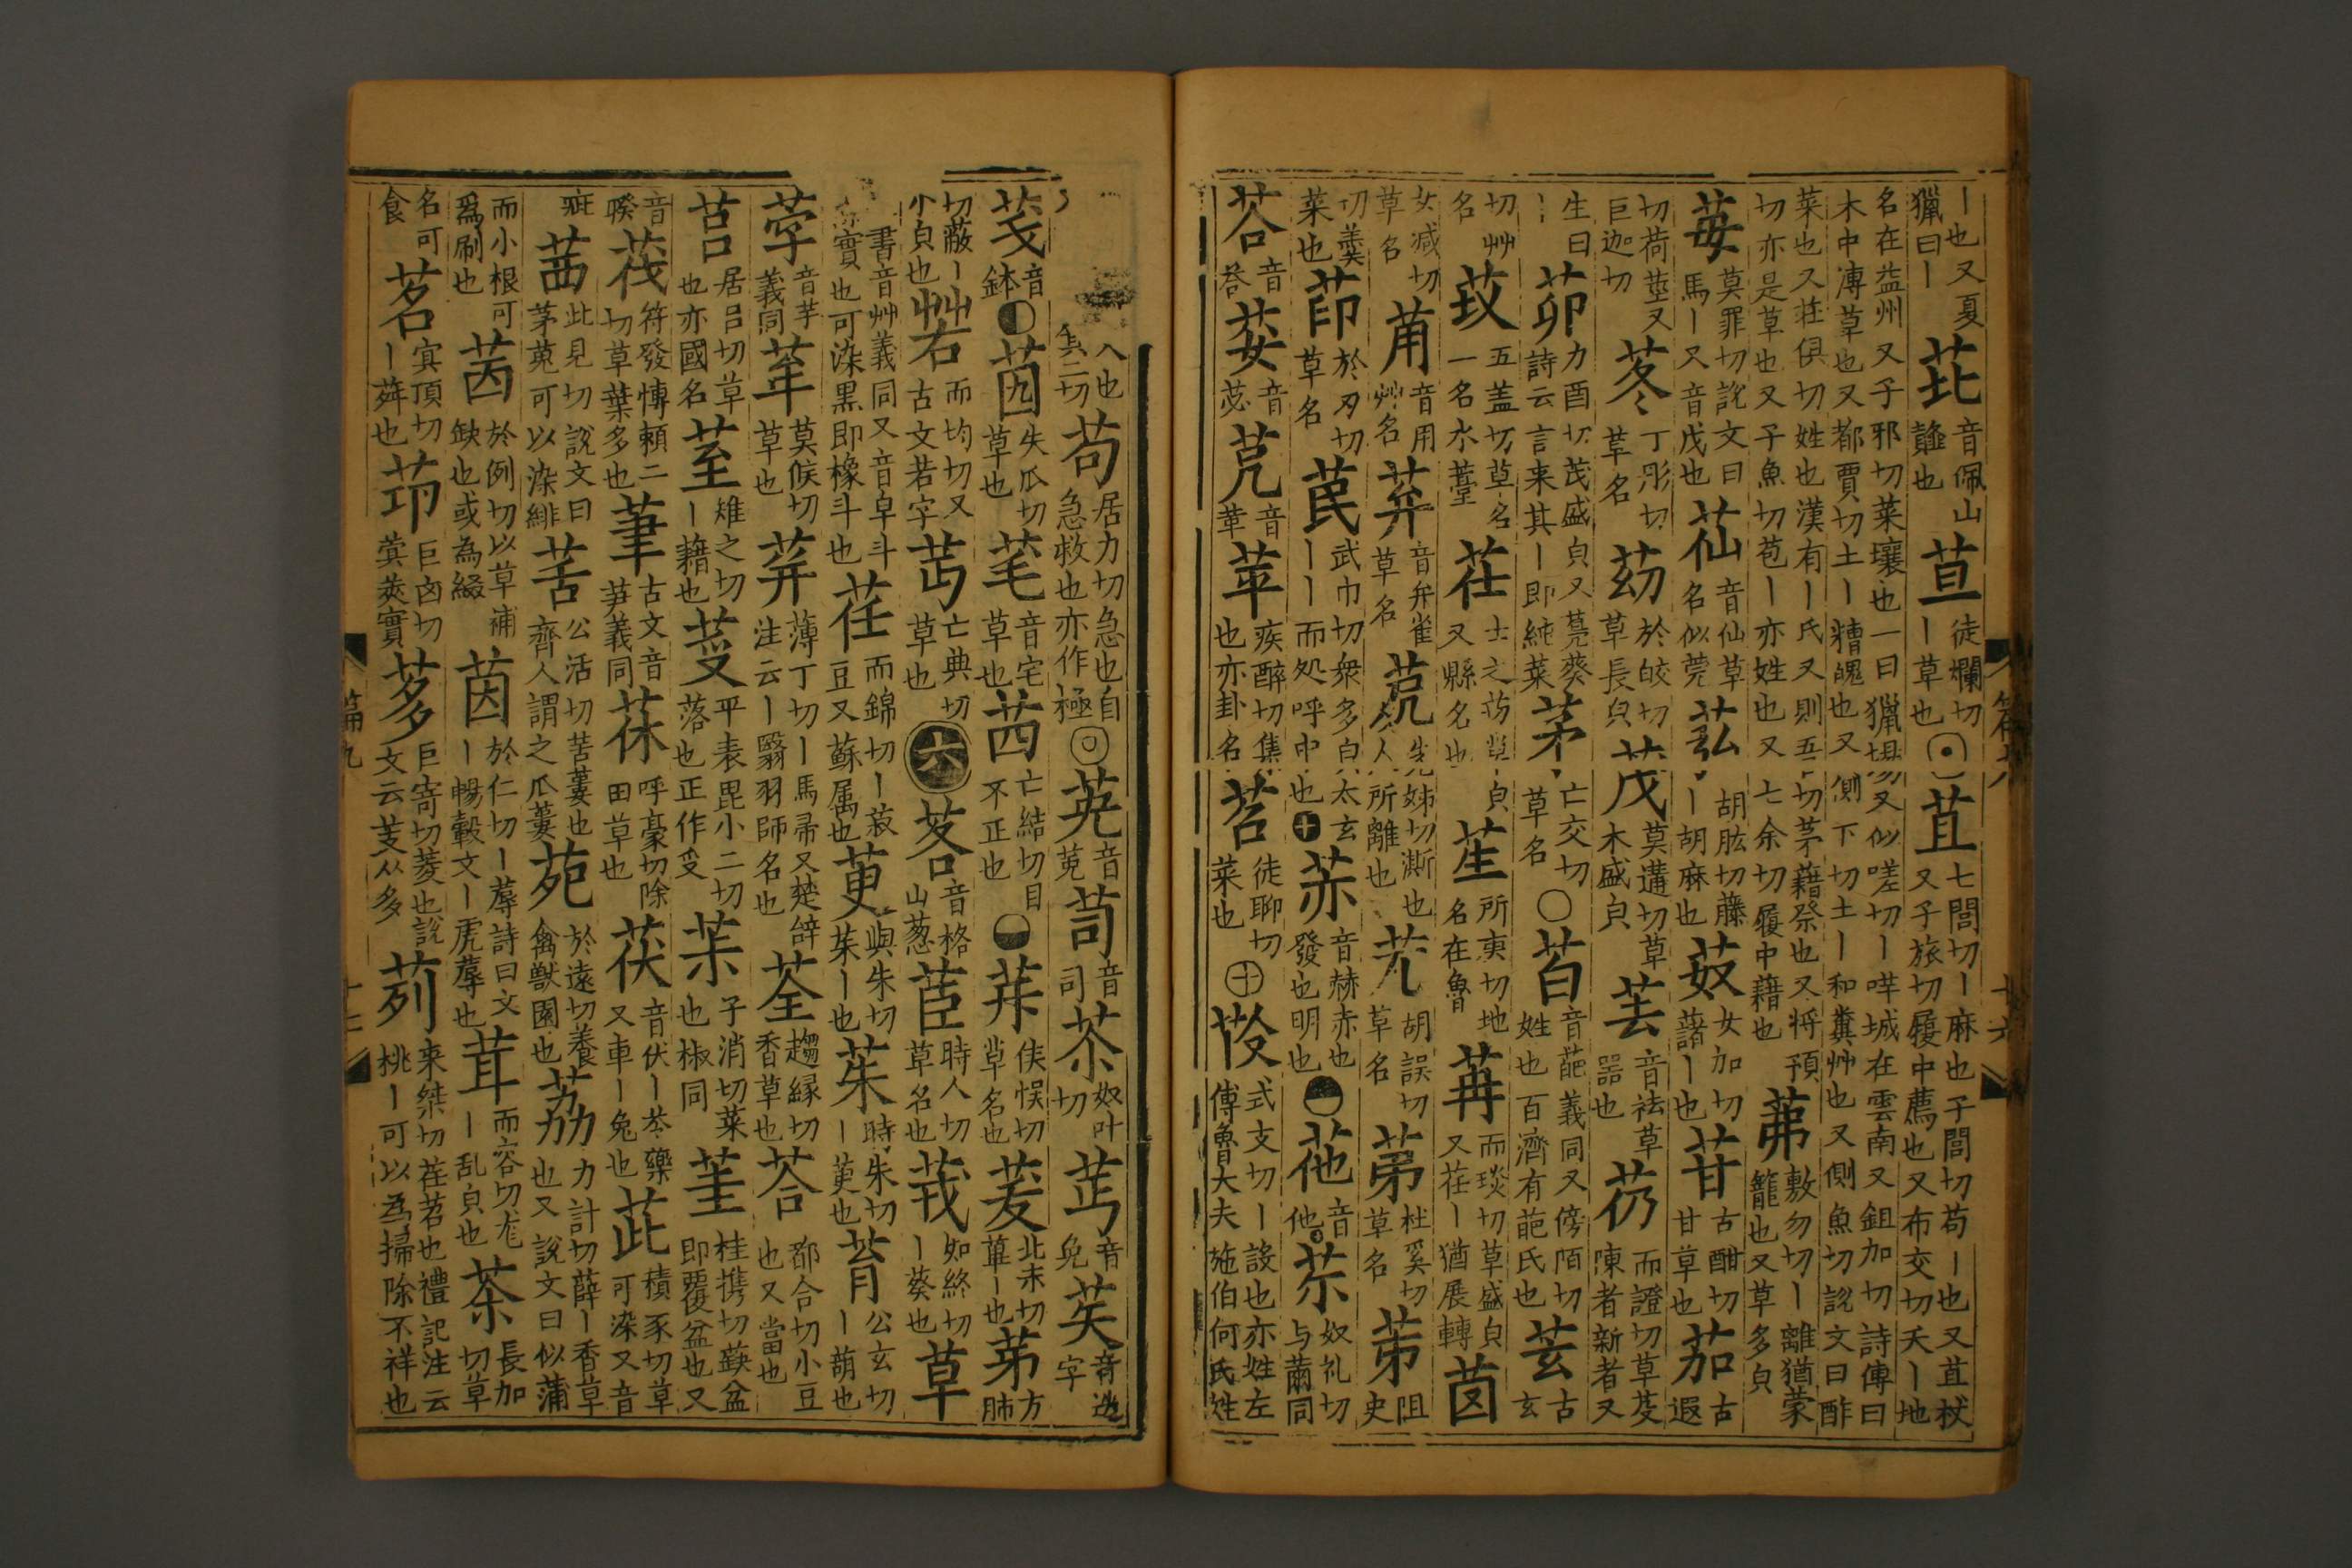 丨也又夏獵曰丨 茈 音佩山䪥也 荁 徒爛切丨草也 苴 七閭切丨麻也子閭切苟丨也又苴杖又子旅切履中薦也又布交切天丨地
名在益州又子邪切菜壤也一曰獵場又似嗟切丨哶城在雲南又鉏加切詩傳曰木中溥草也又都賈切土丨糟魄也又側下切土丨和糞艸也又側魚切説文曰酢
菜也又莊俱切姓也漢有丨氏又則吾切茅藉祭也又將預切亦是草也又子魚切苞丨亦姓也又七余切履中藉也 茀 敷勿切丨離猶蒙籠也又草多皃
苺 莫罪切説文曰馬丨又音戊也 苮 音仙草名似莞 苰 胡肱切藤丨胡麻也 䒳 女加切藷丨也 苷 古酣切甘草也 茄 古遐
切荷莖又巨迦切 苳 丁彤切草名 苭 於皎切草長皃 茂 莫遘切草木盛皃 芺 音祛草器也 芿 而證切草芟陳者新者又
生曰丨 茆 力酉切茂盛皃又鳧葵詩云言采其丨即純菜 茅 亡交切草名 〇 苩 音葩義同又傍陌切姓也百濟有葩氏也 䒸 古玄
切艸名 䒲 五盖切草名一名水薹 茌 士之切草皃又縣名也 苼 所庚切地名在魯 苒 而琰切草盛皃又荏丨猶展轉 茵
女減切草名 苚 音用艸名 莽 音弁雀草名 先姊切澌也人所離也 胡誤切草名 苐 杜奚切草名 䒶 阻史
切羹菜也 茚 於刃切草名 苠 武巾切衆多皃丨丨而処呼中也 ✚ 赤 音赫赤也發也明也 茠 音他 苶 奴礼切与薾同
荅 音答 荽 音荽 莌 音華 苹 疾醉切集也亦卦名 苕 徒聊切菜也 十 式支切丨設也亦姓左傳魯大夫施伯何氏姓
八也其二切 苟 居力切急也自急救也亦作極 英 音莬 苛 音司 苶 奴叶切 芐 音免 苵 音逃字
茷 音鉢 苽 失瓜切草也 芼 音宅草也 苜 亡結切目不正也 茻 侠悮切草名也 茇 北末切蓽丨也 茀 方肺
切蔽丨小皃也 若 而均切又古文若字 芇 亡典切草也 六 茖 音格山葱 茞 時人切草名也 茙 如終切丨葵也 草
書音艸義同又音皁斗實也可染黒即橡斗也 荏 而錦切丨菽豆又蘇属也 萸 㠘朱切茱丨也 茱 時朱切丨萸也 茼 公玄切丨萌也
茡 音芋義同 䒵 莫候切草也 荓 薄丁切丨馬帚又楚辞注云丨翳羽師名也 荃 趨縁切香草也 荅 都合切小豆也又當也
莒 居吕切草也亦國名 荎 雉之切丨藉也 荽 平表毘小二切落也正作受 茮 子消切菜也椒同 茥 桂携切蒛盆即覆盆也又
音暌 茷 符發博頼二切草葉多也 䒴 古文音笋義同 茠 呼豪切除田草也 茯 音伏丨苓藥又車丨兔也 茈 積豕切草可染又音
疵 茜 此見切説文曰茅蒐可以染緋 苦 公活切苦蔞也齊人謂之瓜蔞 苑 於遠切養禽獸園也 荔 力計切薜丨香草也又説文曰似蒲
而小根可爲刷也 苪 於例切以草補缺也或為綴 茵 於仁切丨蓐詩曰文丨暢轂文丨虎蓐也 茸 而容切尨丨乱皃也 茶 長加切草
名可食 茗 㝠頂切丨荈也 茚 巨卤切蓂莢實 茤 巨寄切菱也説文云芰从多 茢 来桀切荏苕也禮記注云桃丨可以為掃除不祥也